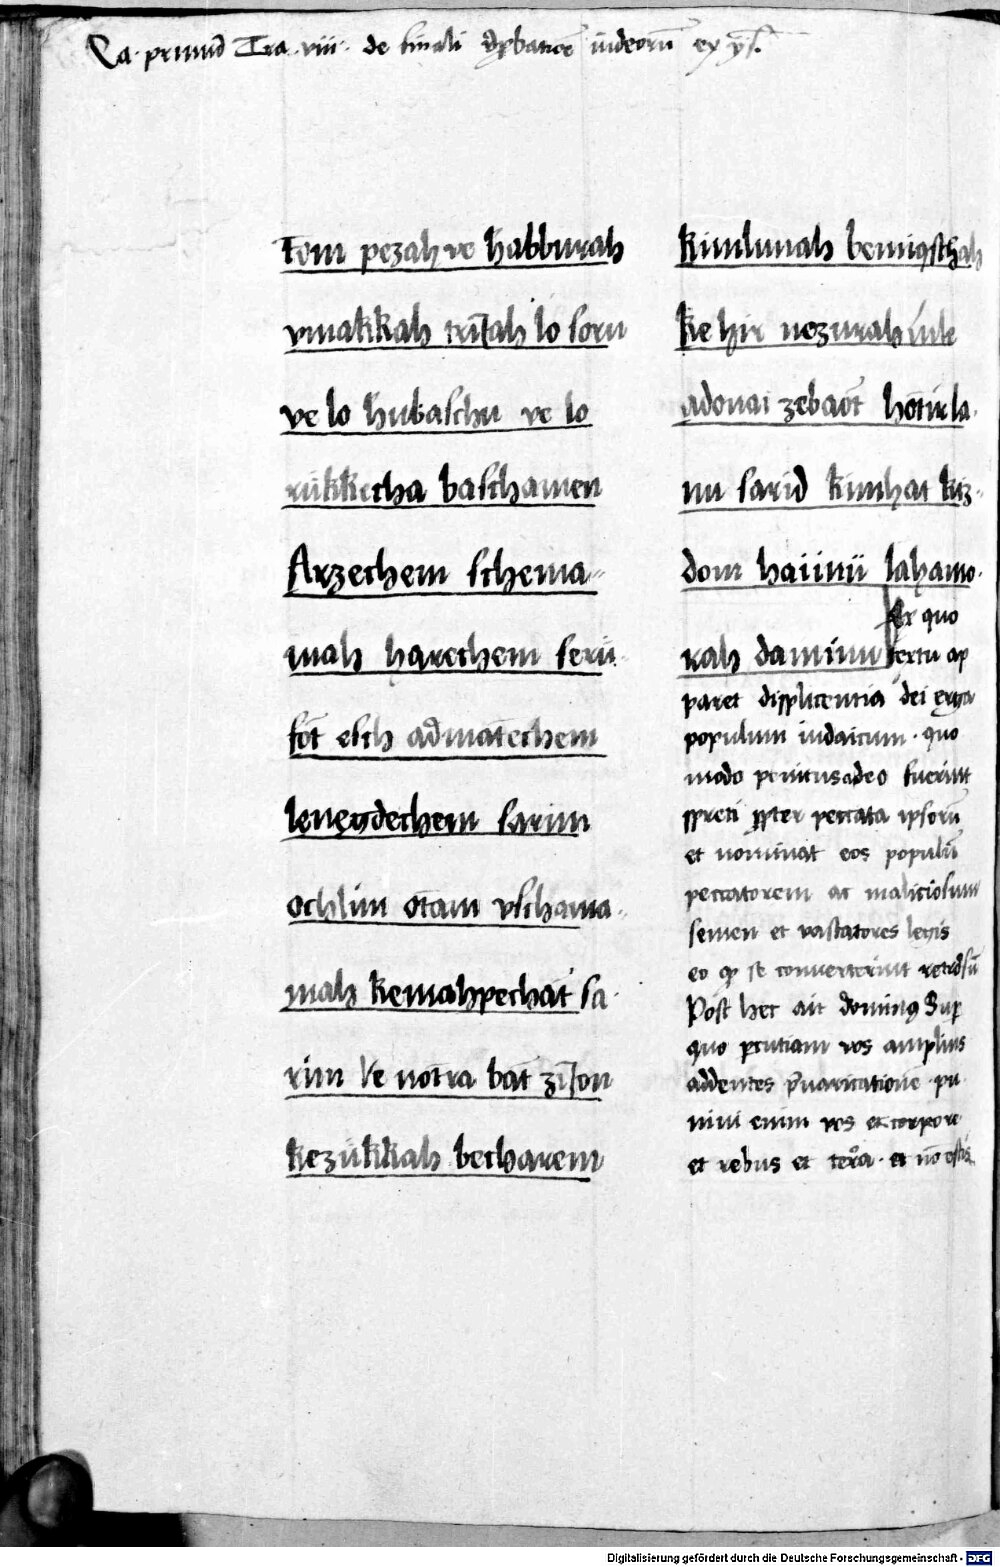 Ca. primū Tra. viii. de finali ꝓbatiōe iudeorū ex ys.
tom pezah ve habburah
vmakkah trijah lo soru
ve lo hubaschu ve lo
rukkecha baschamen
Arzechem schema-
mah harechem seru-
fot esch admatechem
lenegdechem sarim
ochlim otam vschama-
mah kemahpechat sa-
rim ve notra bat zijon
kezukkah becharem
kimlunah bemiqschah
ke hir nezurah lule
adonai zebaot hotirla-
nu sarid kimhat kiz-
dom haiinu lahamo-
Ex quo
rah daminu textu ap
paret displicentia dei erga
populum iudaicum . quo
modo penitus adeo fuerint
spreti ꝓpter peccata ipsorū
et nominat eos populū
peccatorem ac maliciosum
semen et vastatores legis
eo ꝙ se converterint retrorsū
Post hec ait dominꝰ Suꝑ
quo percutiam vos amplius
addentes p̄varicationē . pu
nivi enim vos et corpore
et rebus et terra . et nō estis
Digitalisierung gefördert durch die Deutsche Forschungsgemeinschaft - DFG